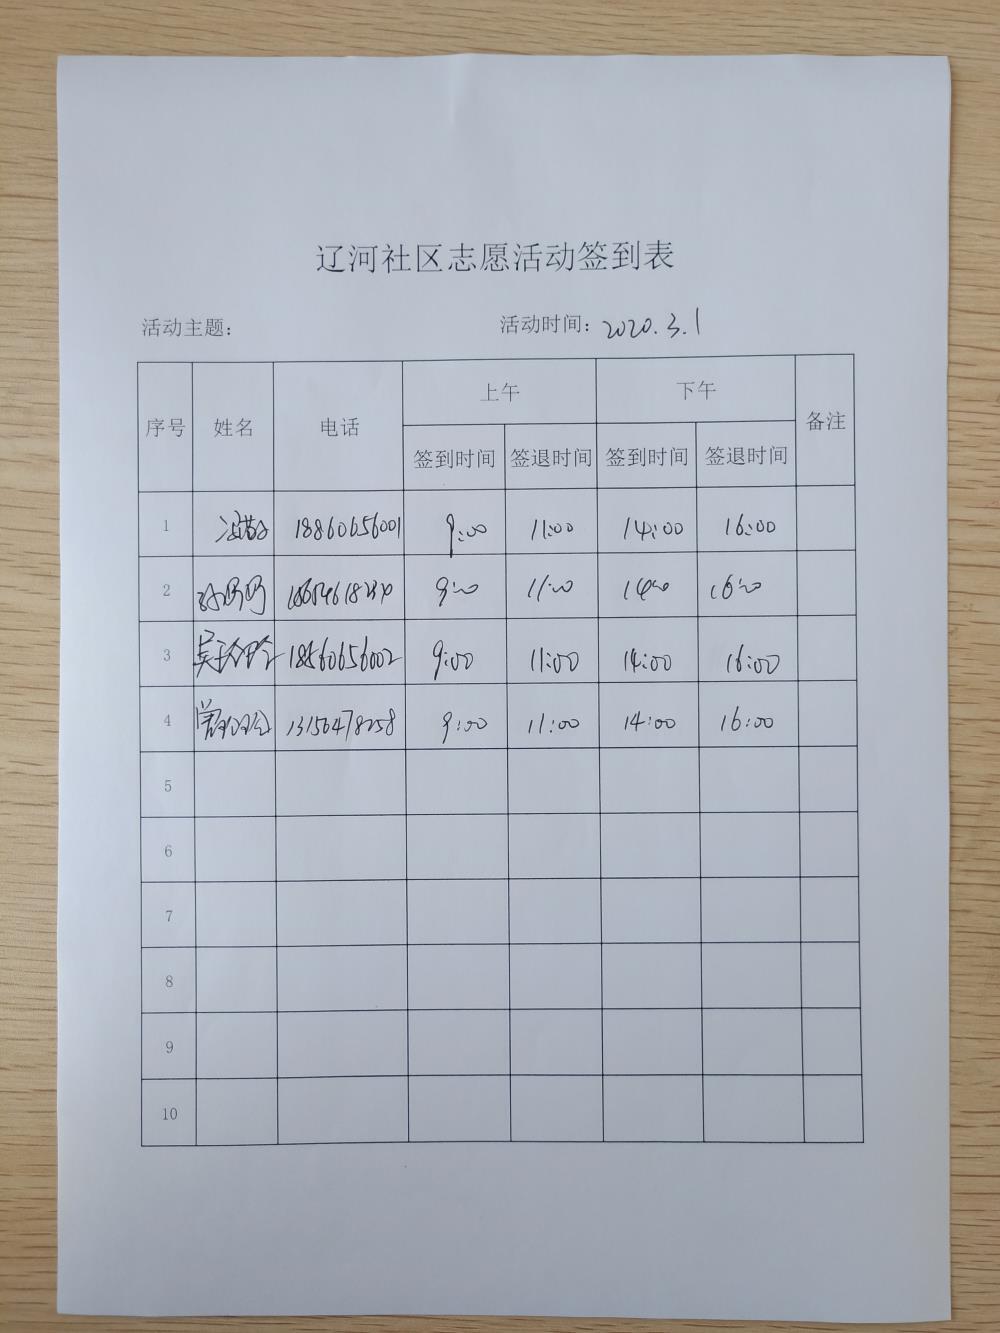 辽河社区志愿活动签到表
活动主题： 活动时间：2020.3.1
序号 姓名 电话 上午 下午 备注
签到时间 签退时间 签到时间 签退时间
1 18860656001 9:00 11:00 14:00 16:00
2 9:00 11:00 14:00 16:00
3 18560656002 9:00 11:00 14:00 16:00
4 13156478258 9:00 11:00 14:00 16:00
5
6
7
8
9
10